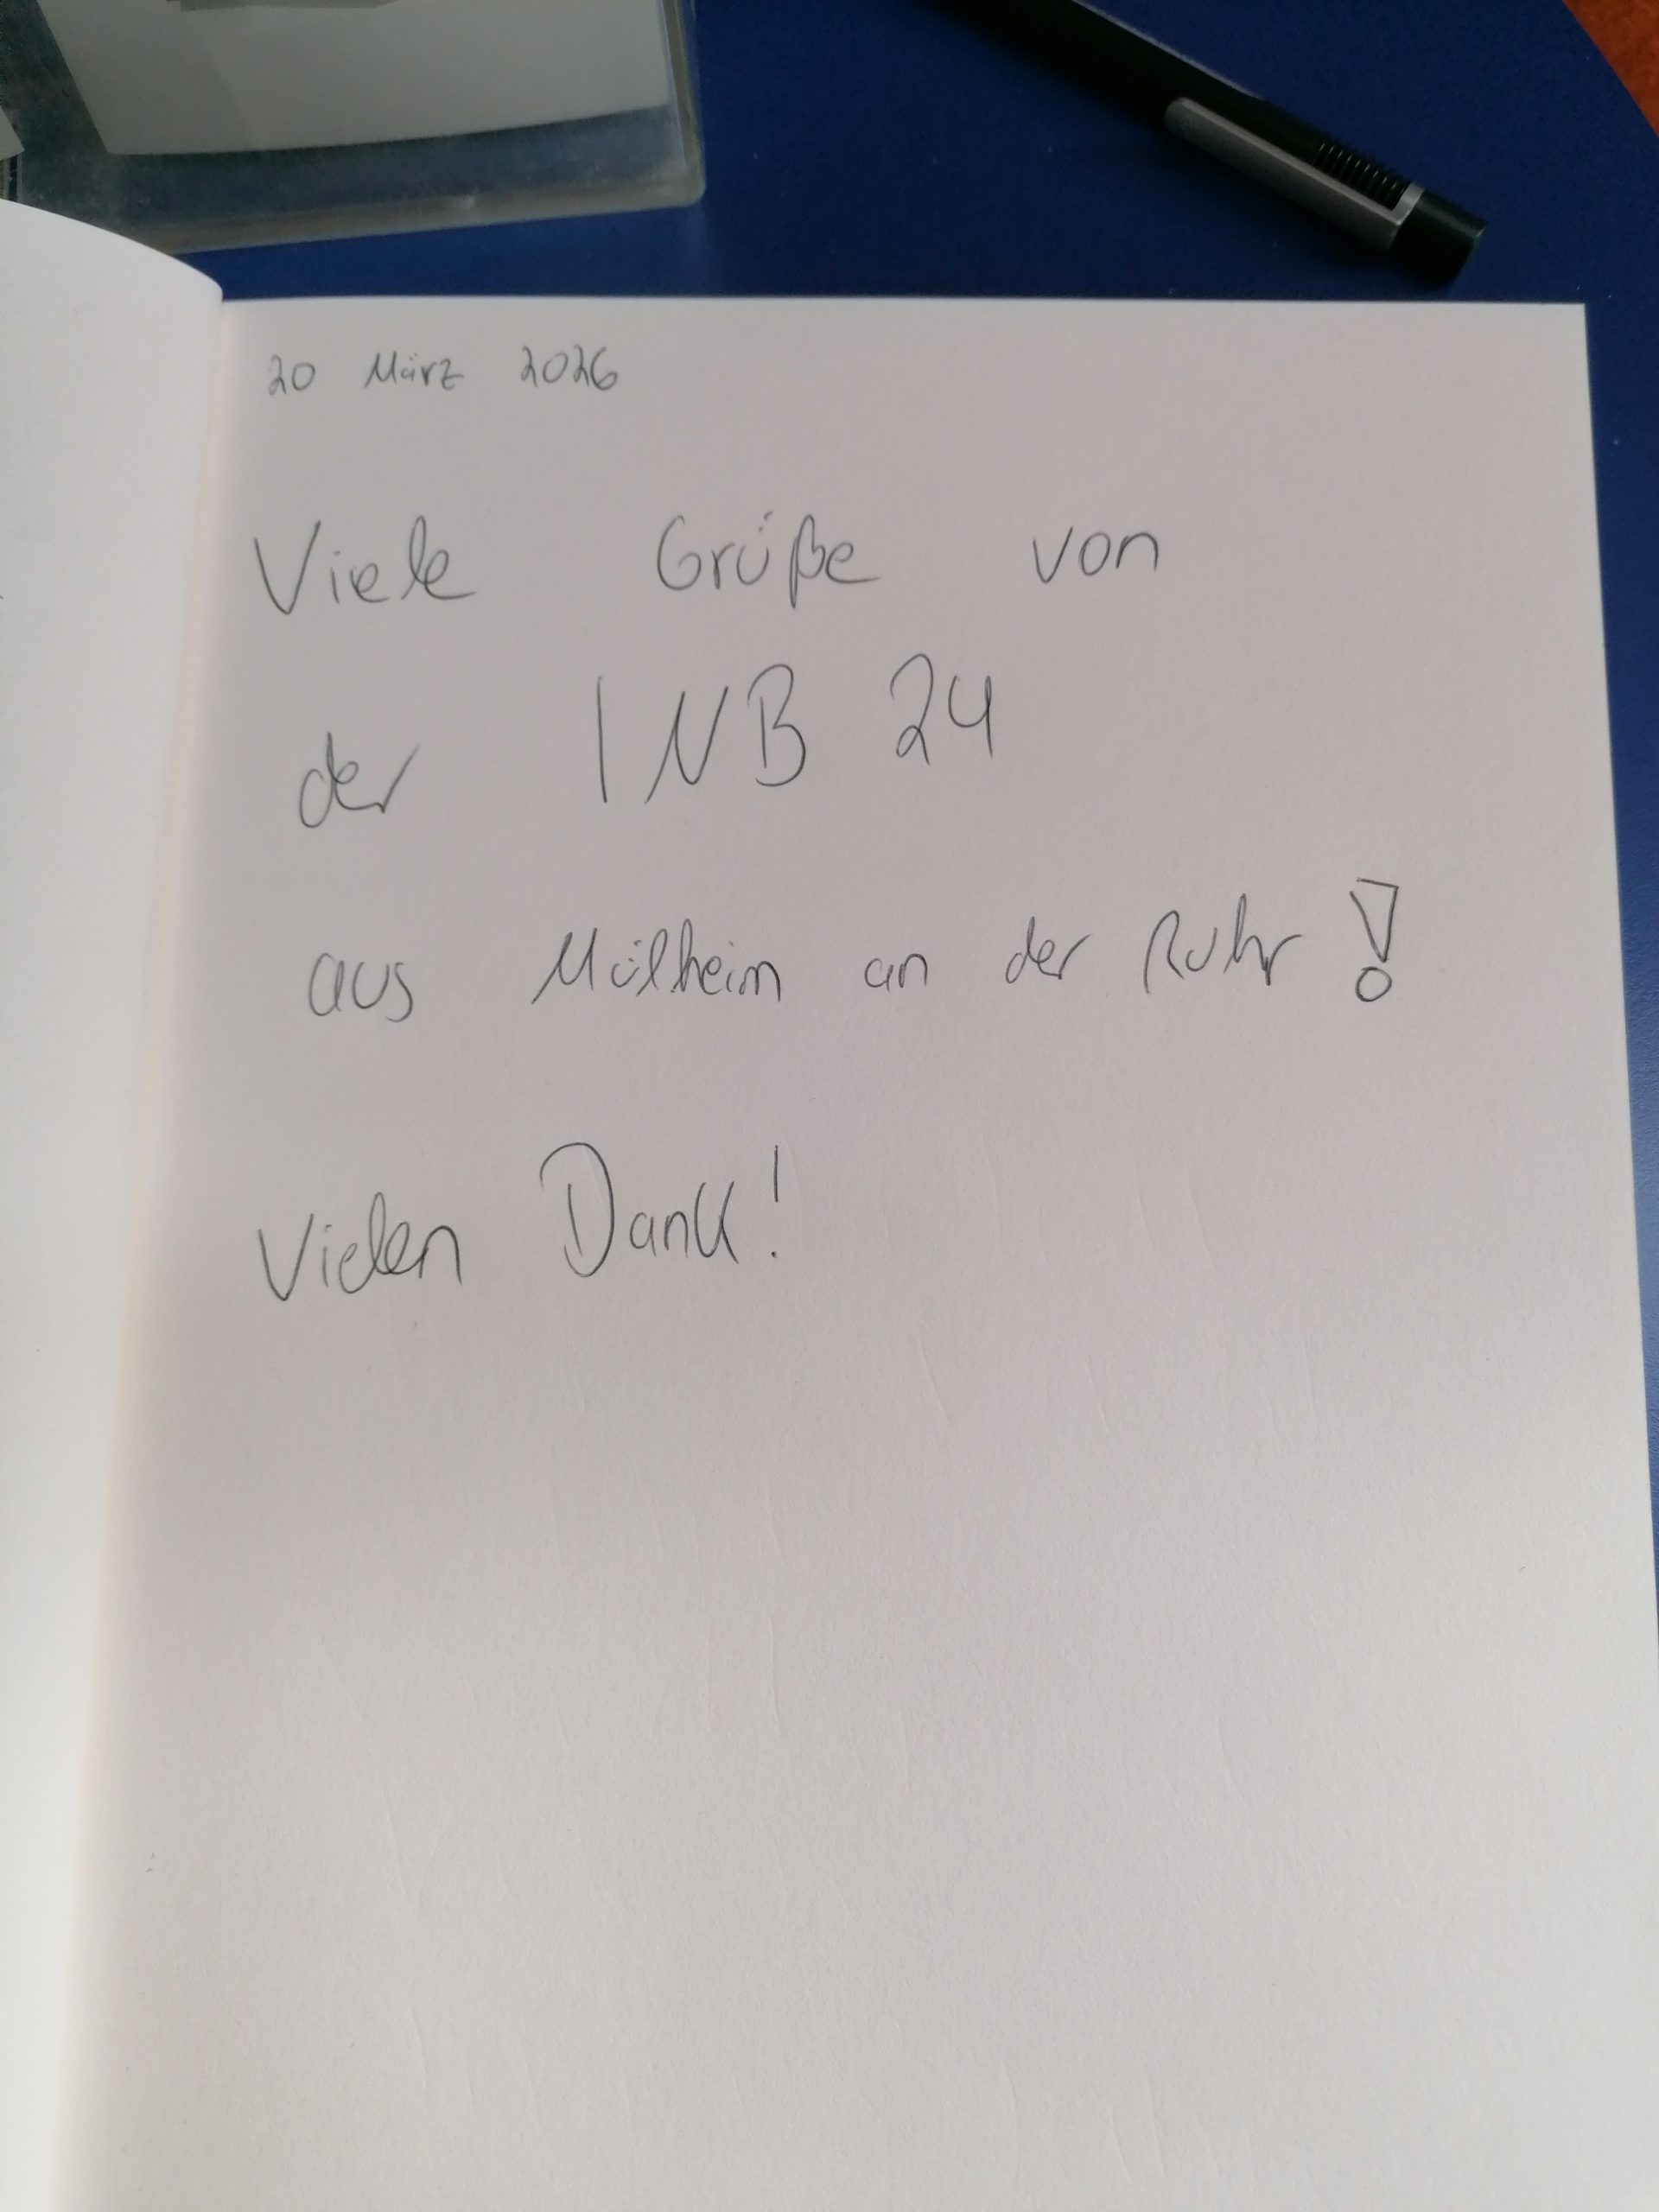 20 März 2026
Viele Grüße von
der INB 24
aus Mülheim an der Ruhr!
Vielen Dank!